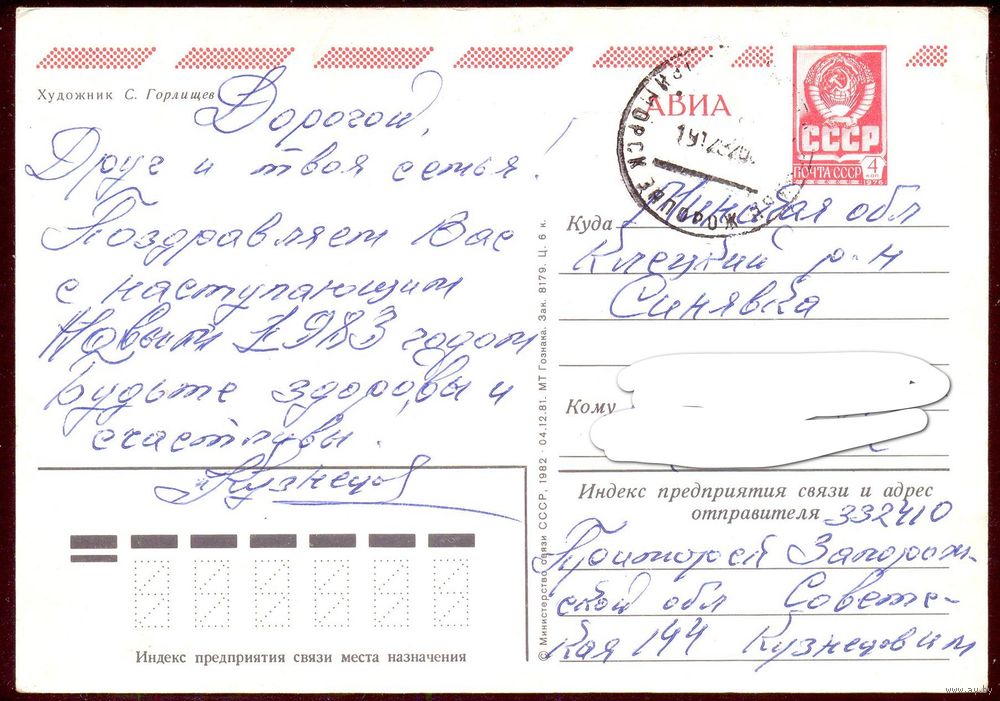 Художник С. Горлищев
Дорогой,
Друг и твоя семья!
Поздравляем Вас
с наступающим
Новым 1983 годом
Будьте здоровы и
счастливы.
Кузнецов
Индекс предприятия связи места назначения
© Министерство связи СССР, 1982 · 04.12.81. МТ Гознака. Зак. 8179. Ц. 6 к.
АВИА
СССР
ПОЧТА СССР 4 КОП
1976
Куда Минская обл
Клецкий р-н
Синявка
Кому
Индекс предприятия связи и адрес
отправителя 332410
Приморск Запорож-
ской обл Советс-
кая 144 Кузнецовым
www.ay.by